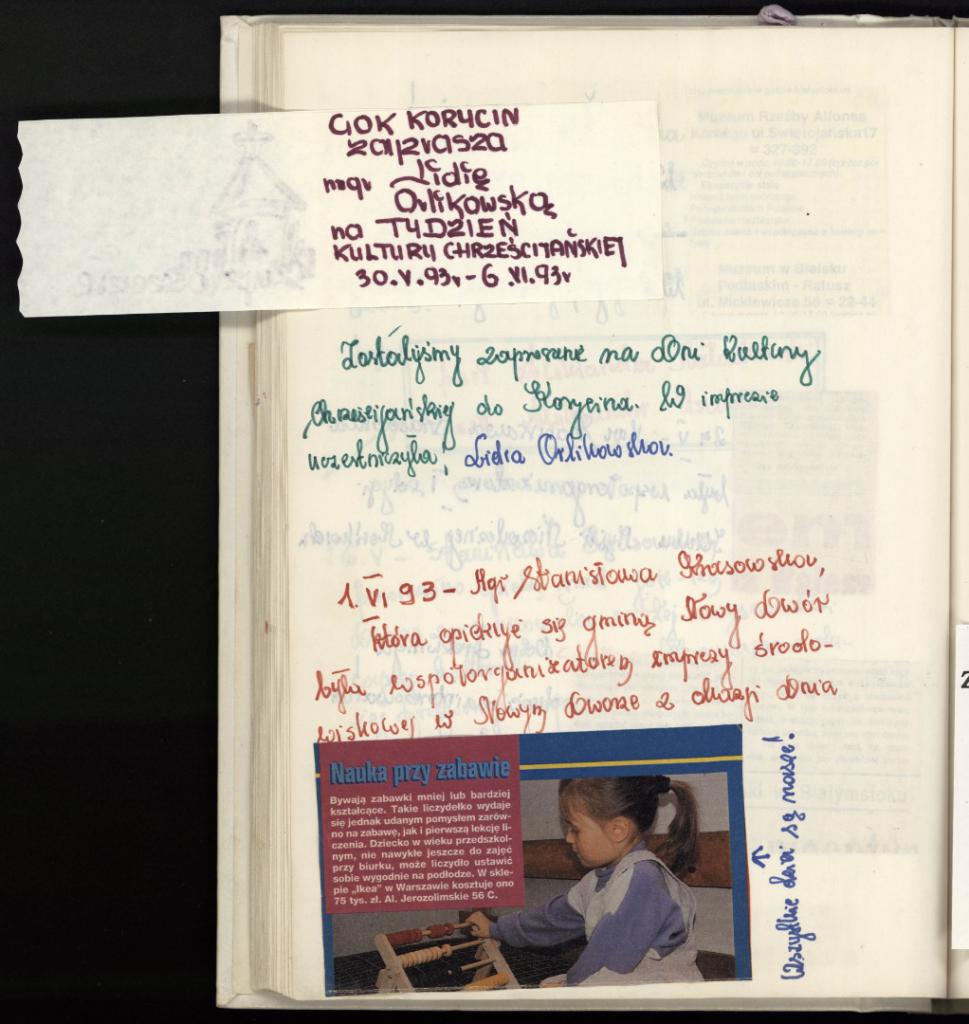 GOK KORYCIN
zaprasza
mgr Lidię
Orlikowską
na TYDZIEŃ
KULTURY CHRZEŚCIJAŃSKIEJ
30.V.93r - 6.VI.93r
Zostałyśmy zaproszone na Dni Kultury
Chrześcijańskiej do Korycina. W imprezie
uczestniczyła, Lidia Orlikowska.
1. VI 93 - Mgr Stanisława Krasowska,
która opiekuje się gminą Nowy Dwór
była współorganizatorem imprezy środo-
wiskowej w Nowym Dworze z okazji Dnia
Nauka przy zabawie
Bywają zabawki mniej lub bardziej
kształcące. Takie liczydełko wydaje
się jednak udanym pomysłem zarów-
no na zabawę, jak i pierwszą lekcję li-
czenia. Dziecko w wieku przedszkol-
nym, nie nawykłe jeszcze do zajęć
przy biurku, może liczydło ustawić
sobie wygodnie na podłodze. W skle-
pie „Ikea" w Warszawie kosztuje ono
75 tys. zł. Al. Jerozolimskie 56 C.
Wszystkie są nasze!
Muzeum Rzeźby Alfonsa
Karnego ul.Świętojańska17
Muzeum w Bielsku
Podlaskim - Ratusz
ul. Mickiewicza 56 = 22-44